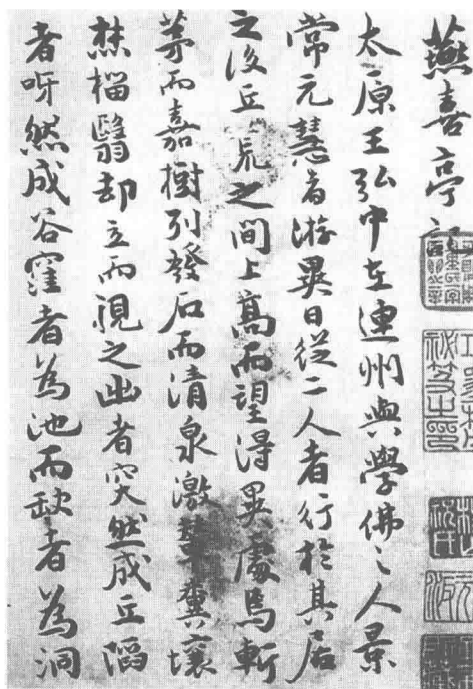 燕喜亭記
太原王弘中在連州與學佛之人景
常元慧者游異日從二人者行於其居
之後丘荒之間上高而望得異處焉斬
茅而嘉樹列發石而清泉激輦糞壤
焚椔翳却立而視之出者突然成丘陷
者呀然成谷窪者為池而缺者為洞